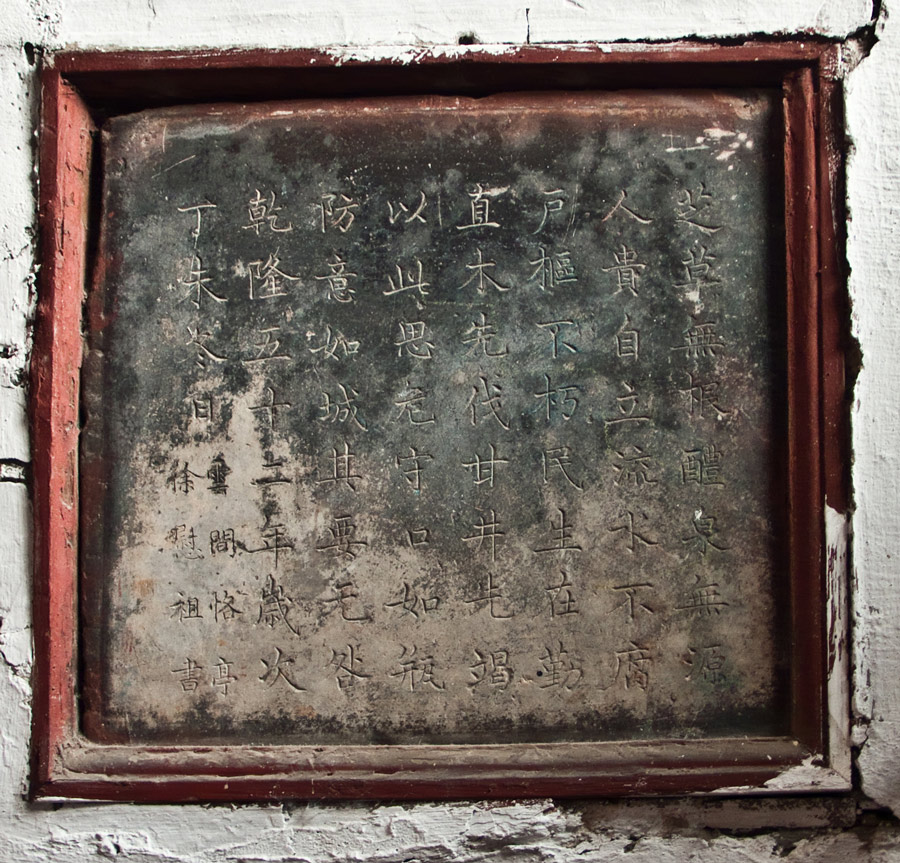 芝草無根醴泉無源
人貴自立流水不腐
戶樞不朽民生在勤
直木先伐甘井先竭
以此思危守口如瓶
防意如城其要无咎
乾隆五十二年歲次
丁未冬日
雲間恪亭
徐慰祖書